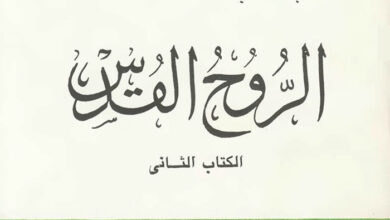 الرُّوحُ القُدُسُ
الكتاب الثانى